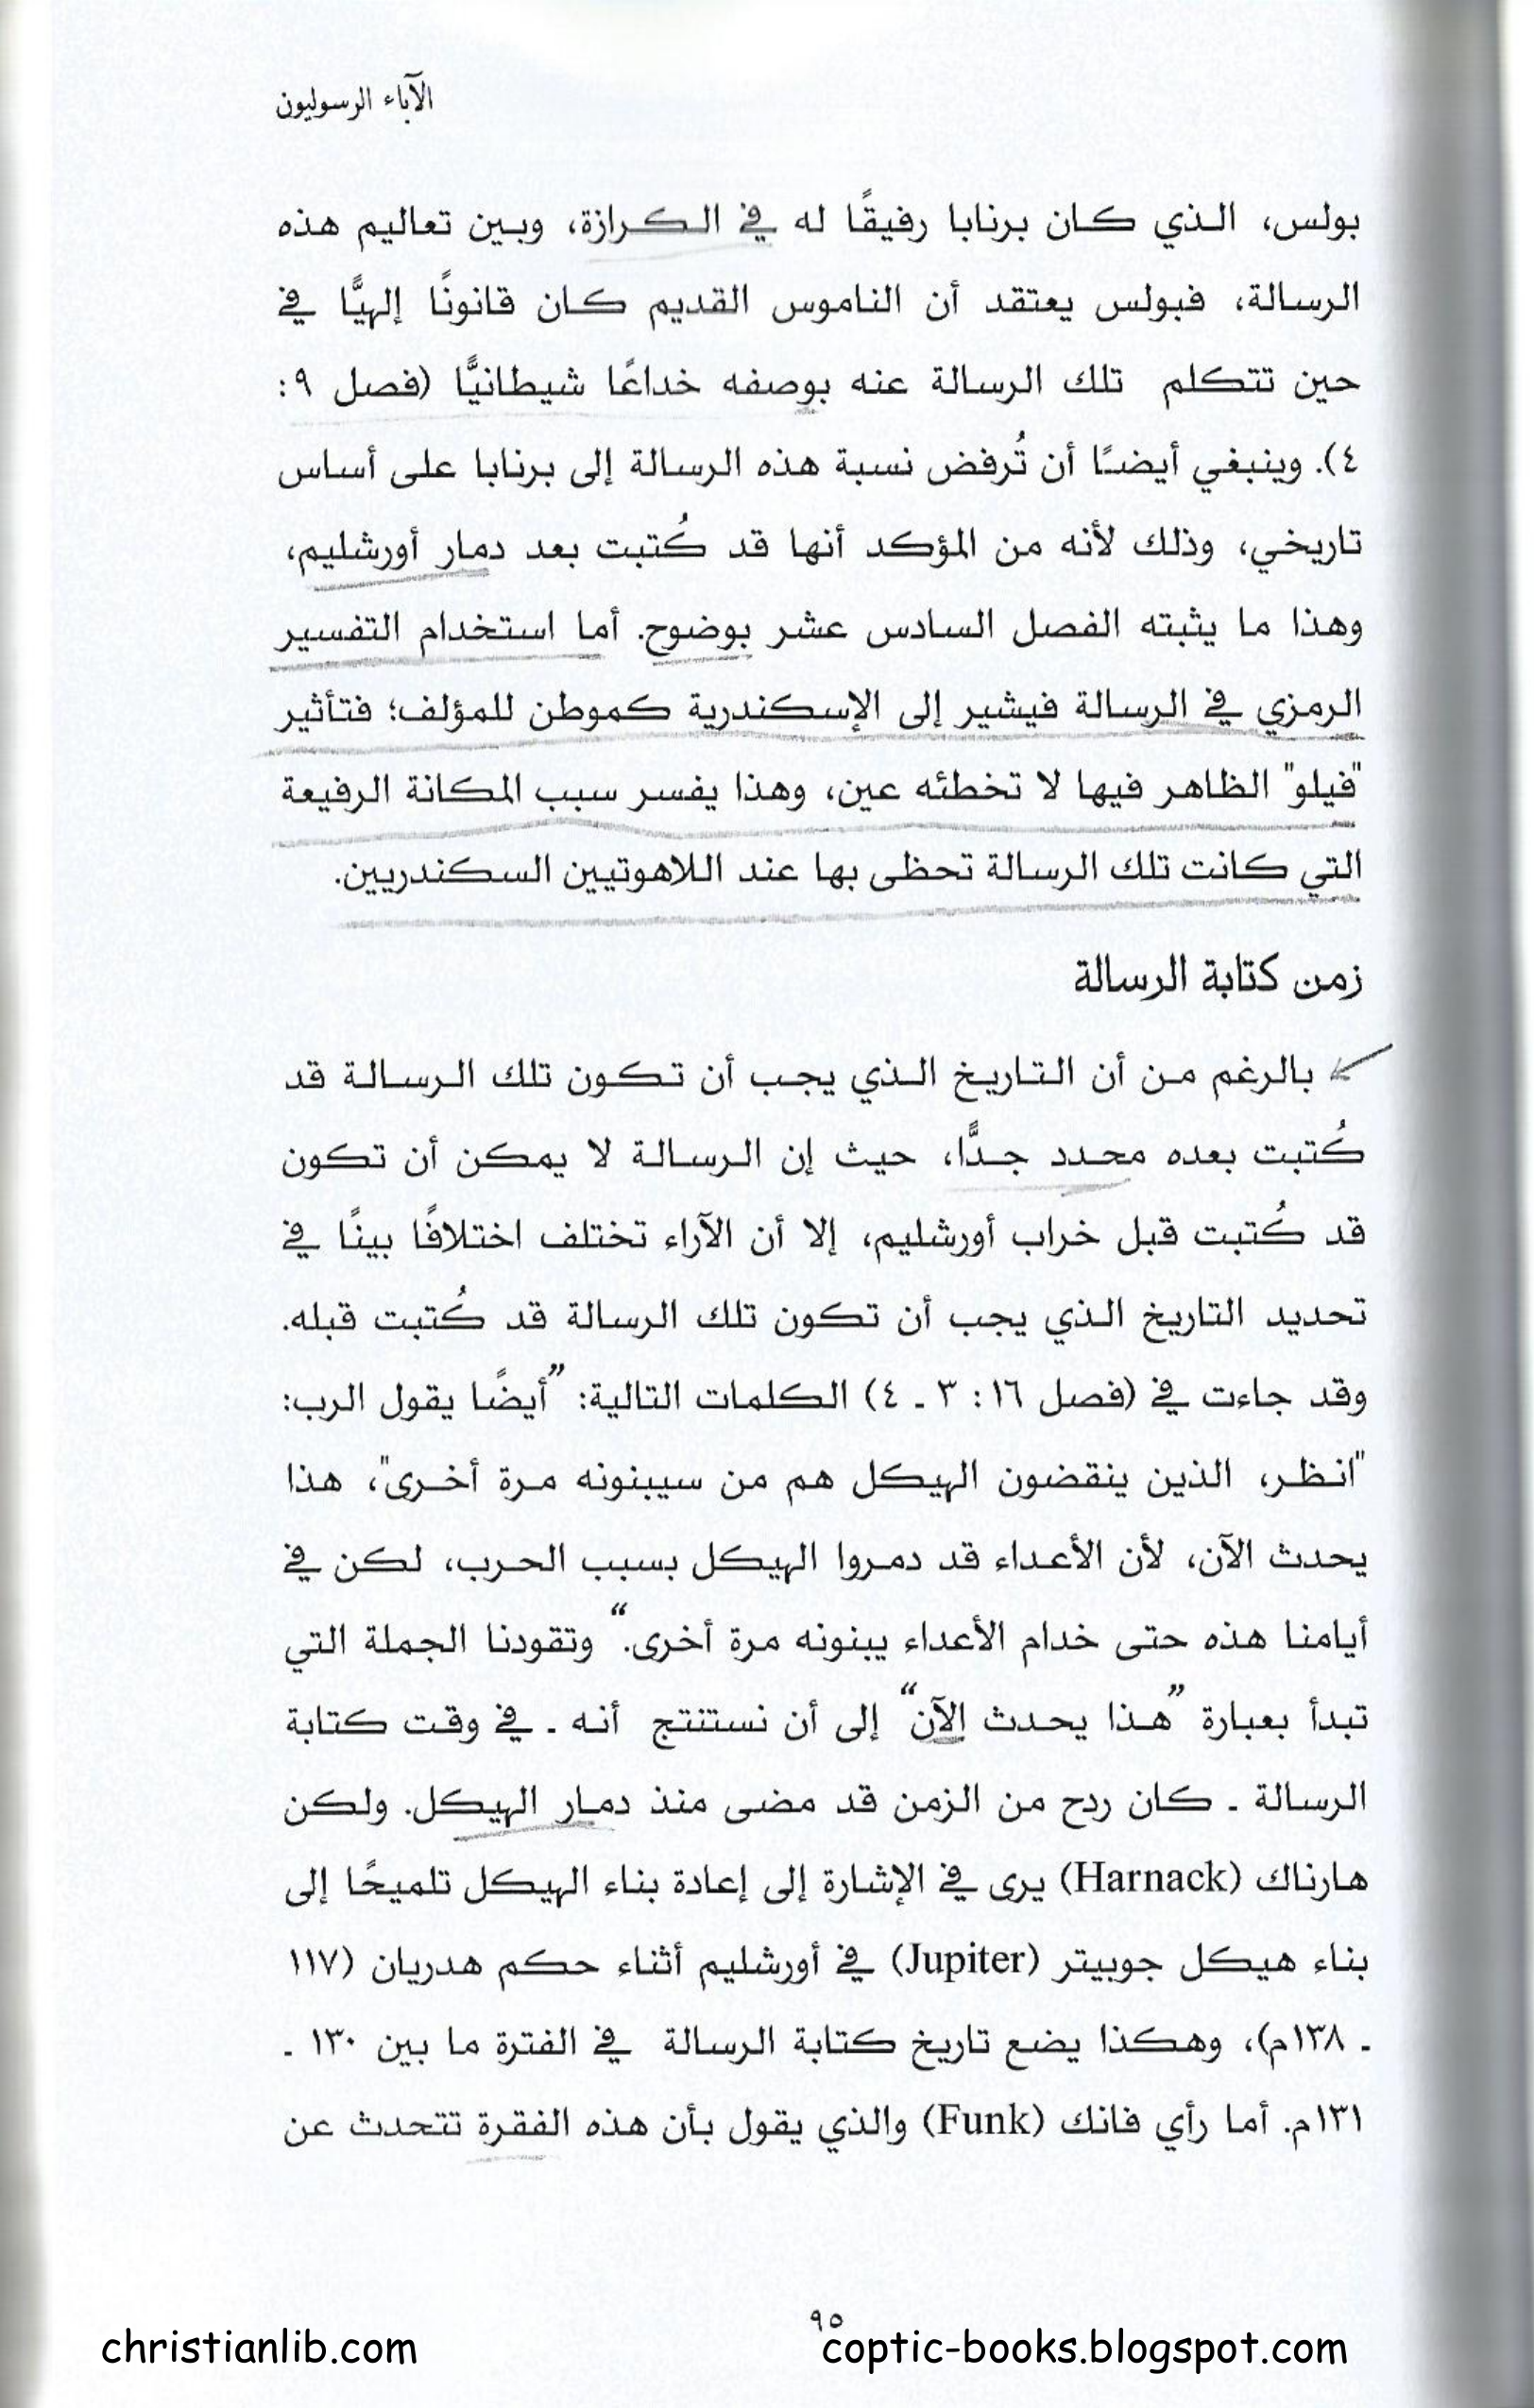 الآباء الرسوليون
بولس، الذي كان برنابا رفيقًا له في الكرازة، وبين تعاليم هذه
الرسالة، فبولس يعتقد أن الناموس القديم كان قانونًا إلهيًّا في
حين تتكلم تلك الرسالة عنه بوصفه خداعًا شيطانيًّا (فصل ٩:
٤). وينبغي أيضًا أن تُرفض نسبة هذه الرسالة إلى برنابا على أساس
تاريخي، وذلك لأنه من المؤكد أنها قد كُتبت بعد دمار أورشليم،
وهذا ما يثبته الفصل السادس عشر بوضوح. أما استخدام التفسير
الرمزي في الرسالة فيشير إلى الإسكندرية كموطن للمؤلف؛ فتأثير
"فيلو" الظاهر فيها لا تخطئه عين، وهذا يفسر سبب المكانة الرفيعة
التي كانت تلك الرسالة تحظى بها عند اللاهوتيين السكندريين.
زمن كتابة الرسالة
بالرغم من أن التاريخ الذي يجب أن تكون تلك الرسالة قد
كُتبت بعده محدد جدًّا، حيث إن الرسالة لا يمكن أن تكون
قد كُتبت قبل خراب أورشليم، إلا أن الآراء تختلف اختلافًا بينًا في
تحديد التاريخ الذي يجب أن تكون تلك الرسالة قد كُتبت قبله.
وقد جاءت في (فصل ١٦: ٣ ـ ٤) الكلمات التالية: ”أيضًا يقول الرب:
"انظر، الذين ينقضون الهيكل هم من سيبنونه مرة أخرى"، هذا
يحدث الآن، لأن الأعداء قد دمروا الهيكل بسبب الحرب، لكن في
أيامنا هذه حتى خدام الأعداء يبنونه مرة أخرى.“ وتقودنا الجملة التي
تبدأ بعبارة ”هذا يحدث الآن“ إلى أن نستنتج أنه ـ في وقت كتابة
الرسالة ـ كان ردح من الزمن قد مضى منذ دمار الهيكل. ولكن
هارناك (Harnack) يرى في الإشارة إلى إعادة بناء الهيكل تلميحًا إلى
بناء هيكل جوبيتر (Jupiter) في أورشليم أثناء حكم هدريان (١١٧
ـ ١٣٨م)، وهكذا يضع تاريخ كتابة الرسالة في الفترة ما بين ١٣٠ ـ
١٣١م. أما رأي فانك (Funk) والذي يقول بأن هذه الفقرة تتحدث عن
٩٥
christianlib.com
coptic-books.blogspot.com